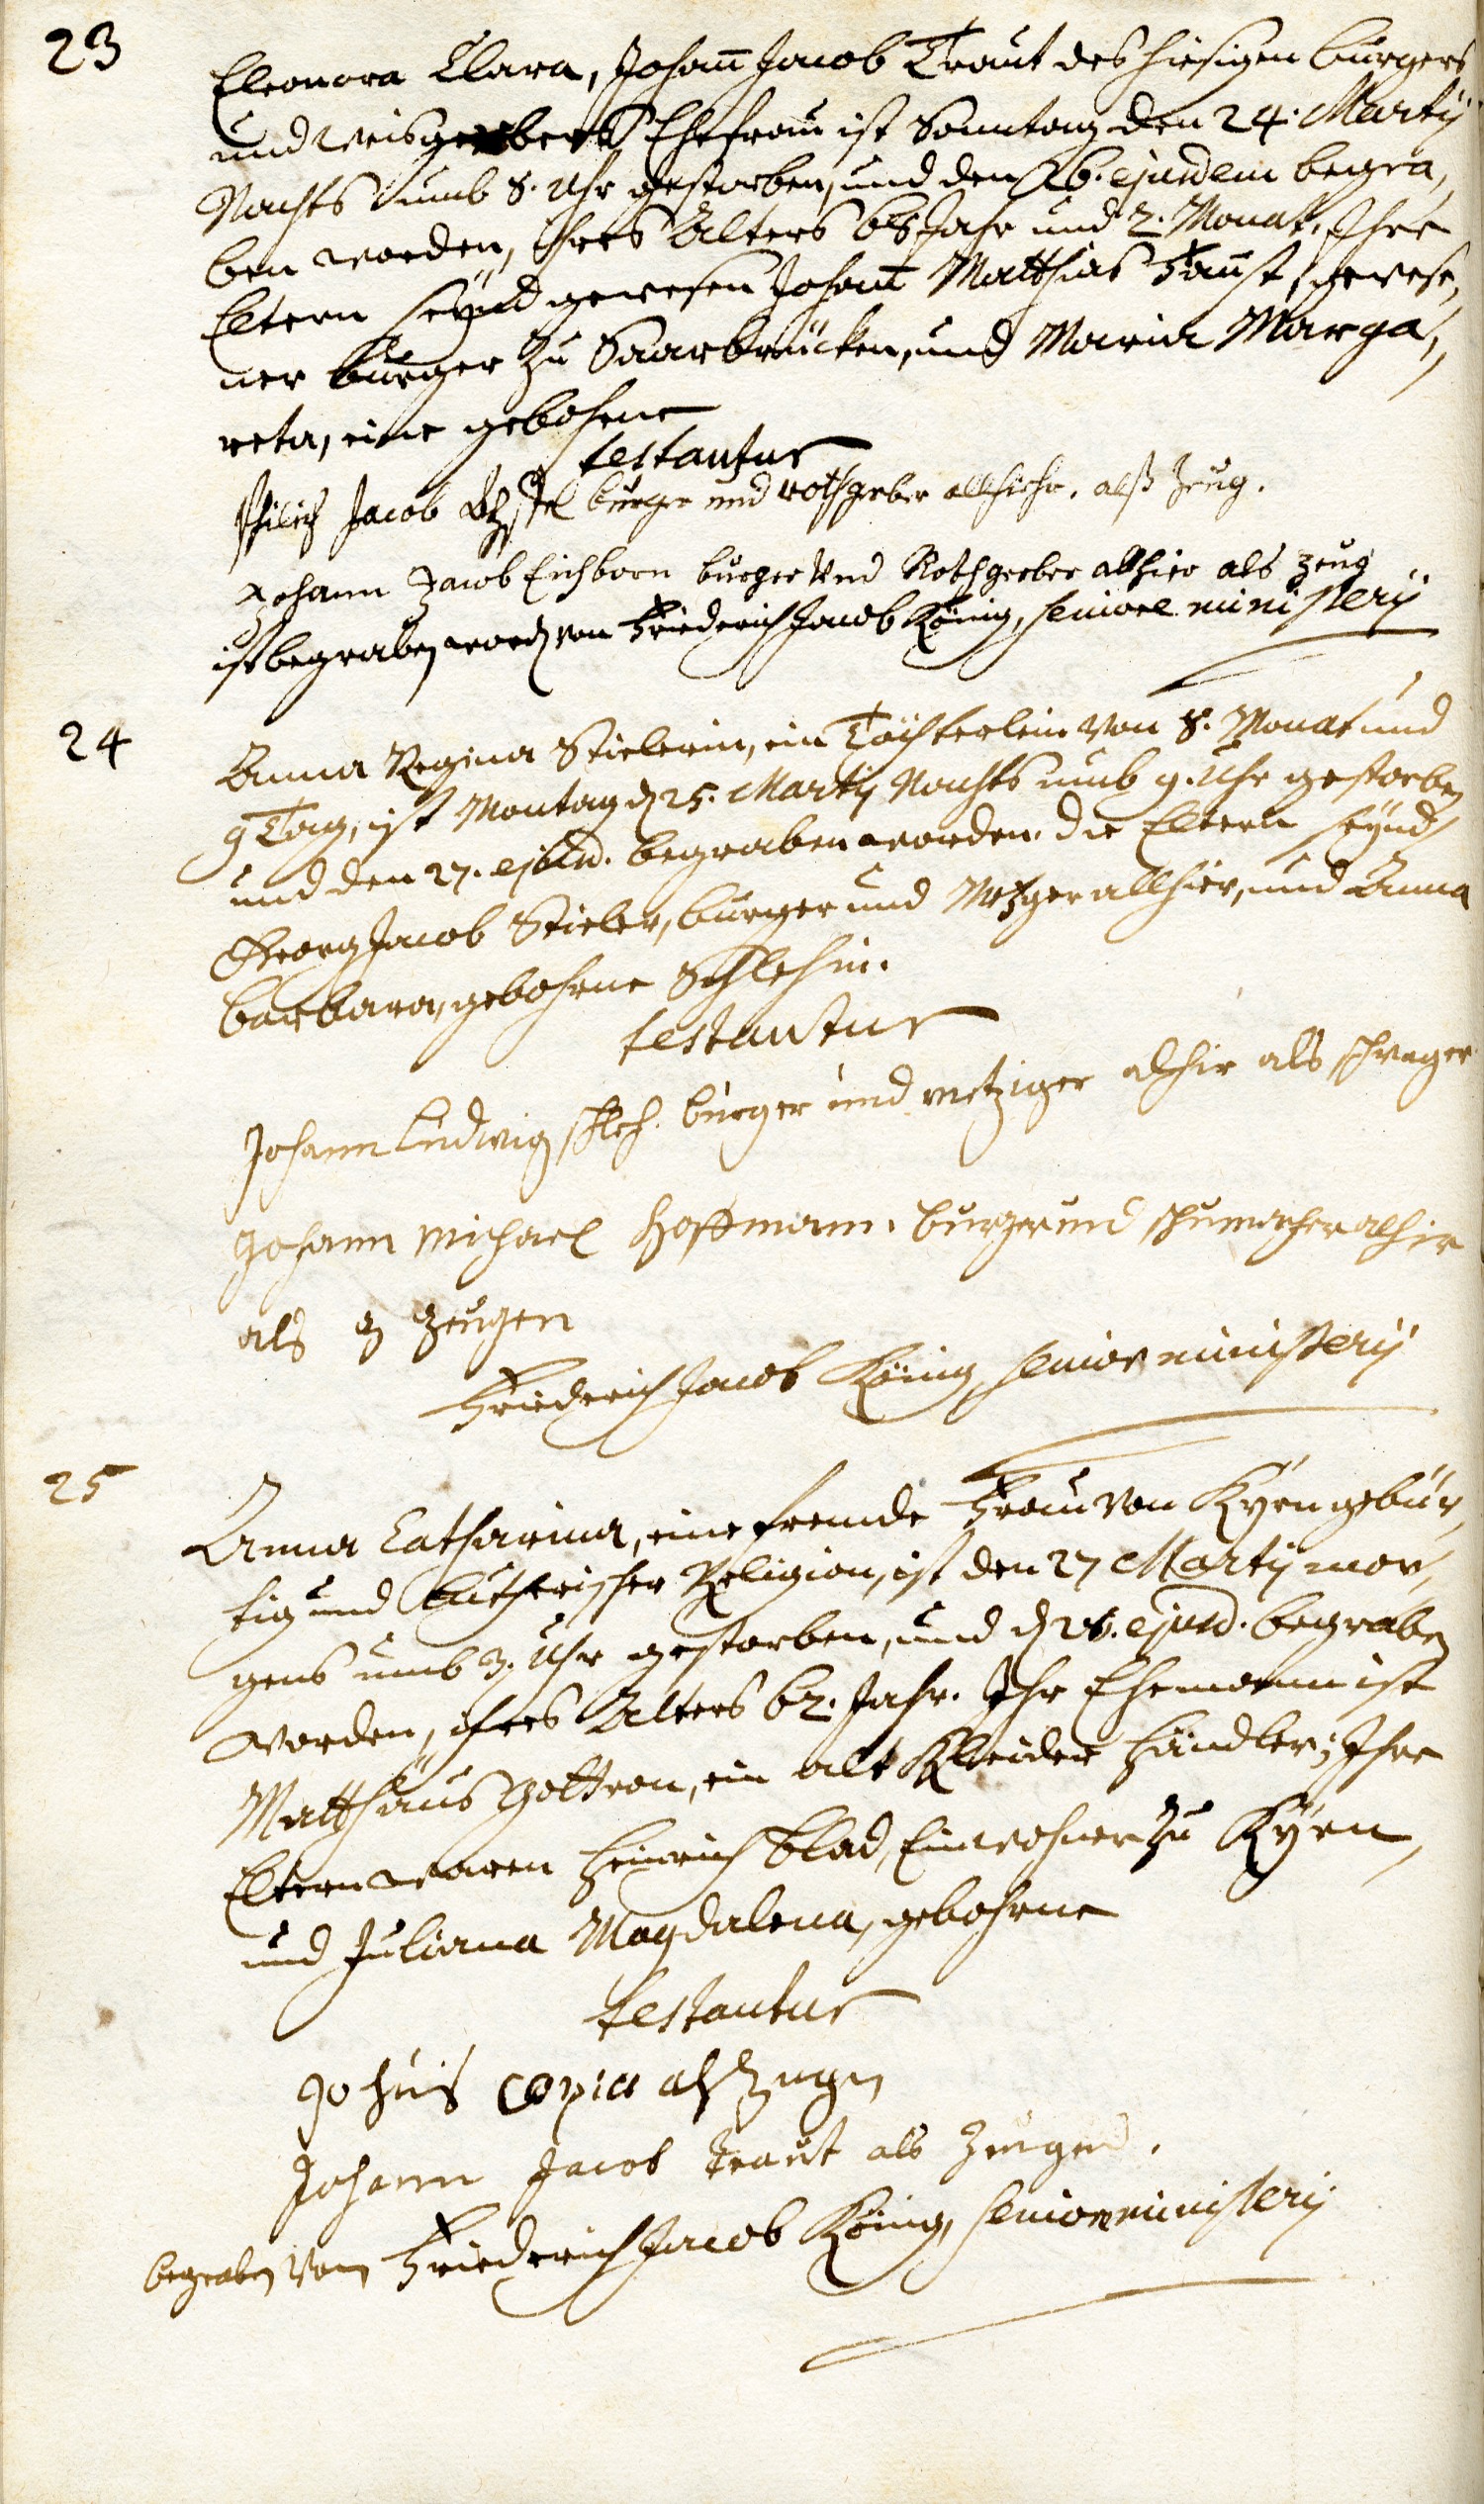 23
Eleonora Clara, Johann Jacob Traut des hiesigen burgers
und weisgerbers Ehefrau ist Sonntag den 24. Martij
Nachts umb 8. Uhr gestorben, und den 26. ejusdem begra,
ben worden, ihres Alters 65 Jahr und 2. Monat. Ihre
Eltern seynd gewesen Johann Matthias Faust, gewese,
ner burger zu Saarbrücken, und Maria Marga,
reta, eine gebohrne
testantur
Philips Jacob burger und rothgerber allhiehr, alß Zeug.
Johann Jacob Eichborn burger und Rothgerber allhier als zeug
ist begraben word von Friederich Jacob König, seniore ministerij
24
Anna Regina Stielerin, ein Töchterlein von 8. Monat und
9 Tag, ist Montag d 25. Martij Nachts umb 9. Uhr gestorben
und den 27. ejusd. begraben worden. Die Eltern seynd
Georg Jacob Stieler, burger und Metzger allhier, und Anna
barbara, gebohrne Schlehin.
testantur
Johann Ludwig schleh. burger und metziger alhir als schwager
Johann Michael Hoffmann. burger und schumacher alhir
als zeugen
Friederich Jacob König, senior ministerij
25
Anna Catharina, eine fremde Frau von Kyrn gebür,
tig und Lutherischer Religion, ist den 27 Martij mor,
gens umb 3. Uhr gestorben, und d 28. ejusd. begraben
worden, ihres Alters 62. Jahr. Ihr Ehemann ist
Matthäus Gottron, ein alt Kleider Händler; Ihre
Eltern waren Heinrich blad, Einwohner zu Kyrn,
und Juliana Magdalena, gebohrne
testantur
als Zeugen
Johann Jacob Traut als Zeugen.
begraben von Friederich Jacob König, senior ministerij